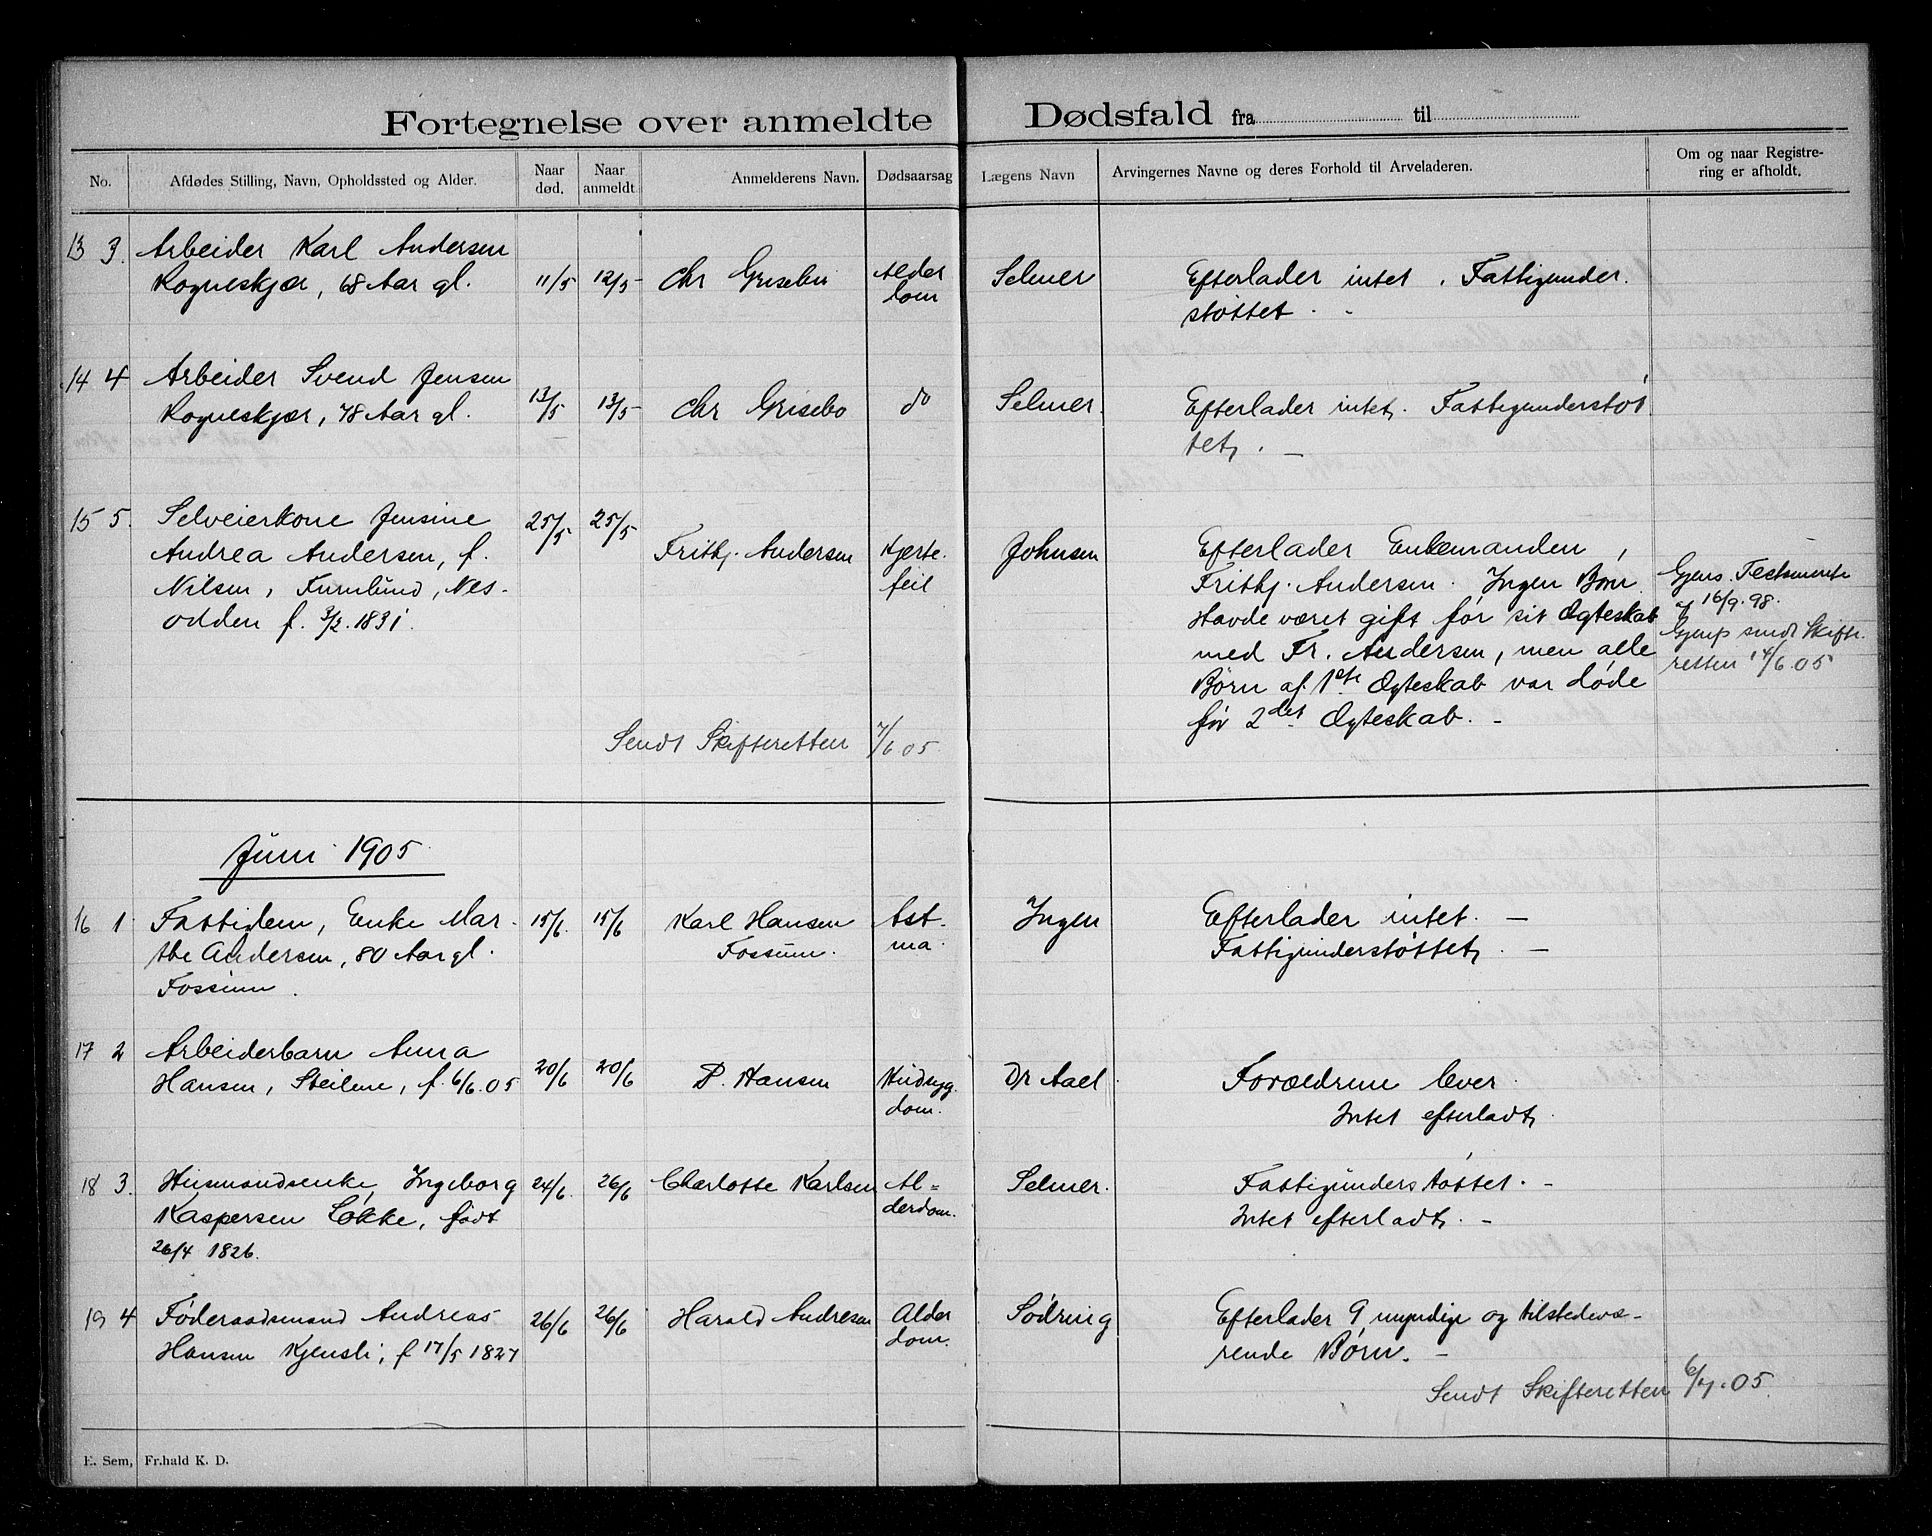 Fortegnelse over anmeldte Dødsfald fra til
No. Afdødes Stilling, Navn, Opholdssted og Alder. Naar død. Naar anmeldt. Anmelderens Navn. Dødsaarsag Lægens Navn Arvingernes Navne og deres Forhold til Arveladeren. Om og naar Registrering er afholdt.
13 3. Arbeider Karl Andersen
Rogneskjær, 68 Aar gl. 11/5 12/5 Chr Grisebu Alder Selmer Efterlader intet. Fattigunder.
dom støttet.
14 4 Arbeider Svend Jensen
Rogneskjær, 78 Aar gl. 13/5 13/5 Chr Grisebo do Selmer. Efterlader intet. Fattigunderstøt
tet. —
15 5. Selveierkone Jensine 25/5 25/5
Andrea Andersen, f. Frithj. Andersen Hjerte. Johnsen Efterlader Enkemanden,
Nilsen, Furulund, Nes- feil Frithj. Andersen. Ingen Børn. Gjens. Testamente
odden f. 3/2. 1831. Havde været gift før sit Ægteskab af 16/9. 98.
med Fr. Andersen, men alle Gjenp sendt Skifte.
Børn af 1ste Ægteskab var døde retten 14/6. 05
før 2det Ægteskab. –
Sendt Skifteretten 7/6 05.
Juni 1905
16 1 Fattiglem, Enke Mar- 15/6. 15/6 Karl Hansen Ast- Ingen Efterlader intet. —
the Andersen, 80 Aar gl. Fossum. ma. Fattigunderstøttet. —
Fossum.
17 2 Arbeiderbarn Anna
Hansen, Steilene, f. 6/6. 05 20/6 20/6 P. Hansen Hudsyg. Dr Aael Forældrene lever.
dom. Intet efterladt.
18 3. Husmandsenke Ingeborg 24/6. 26/6 Charlotte Karlsen Al= Selmer. Fattigunderstøttet. –
Kaspersen Løkke, født derdom. Intet efterladt. –
26/4 1826.
19 4 Føderaadsmand Andreas 26/6 26/6 Harald Andresen Alder Sødring Efterlader 9 myndige og tilstedevæ-
Hansen Kjensli, f 17/5 1827 dom. rende Børn. –
Sendt Skifteretten 6/7. 05.
E. Sem, Fr.hald K. D.